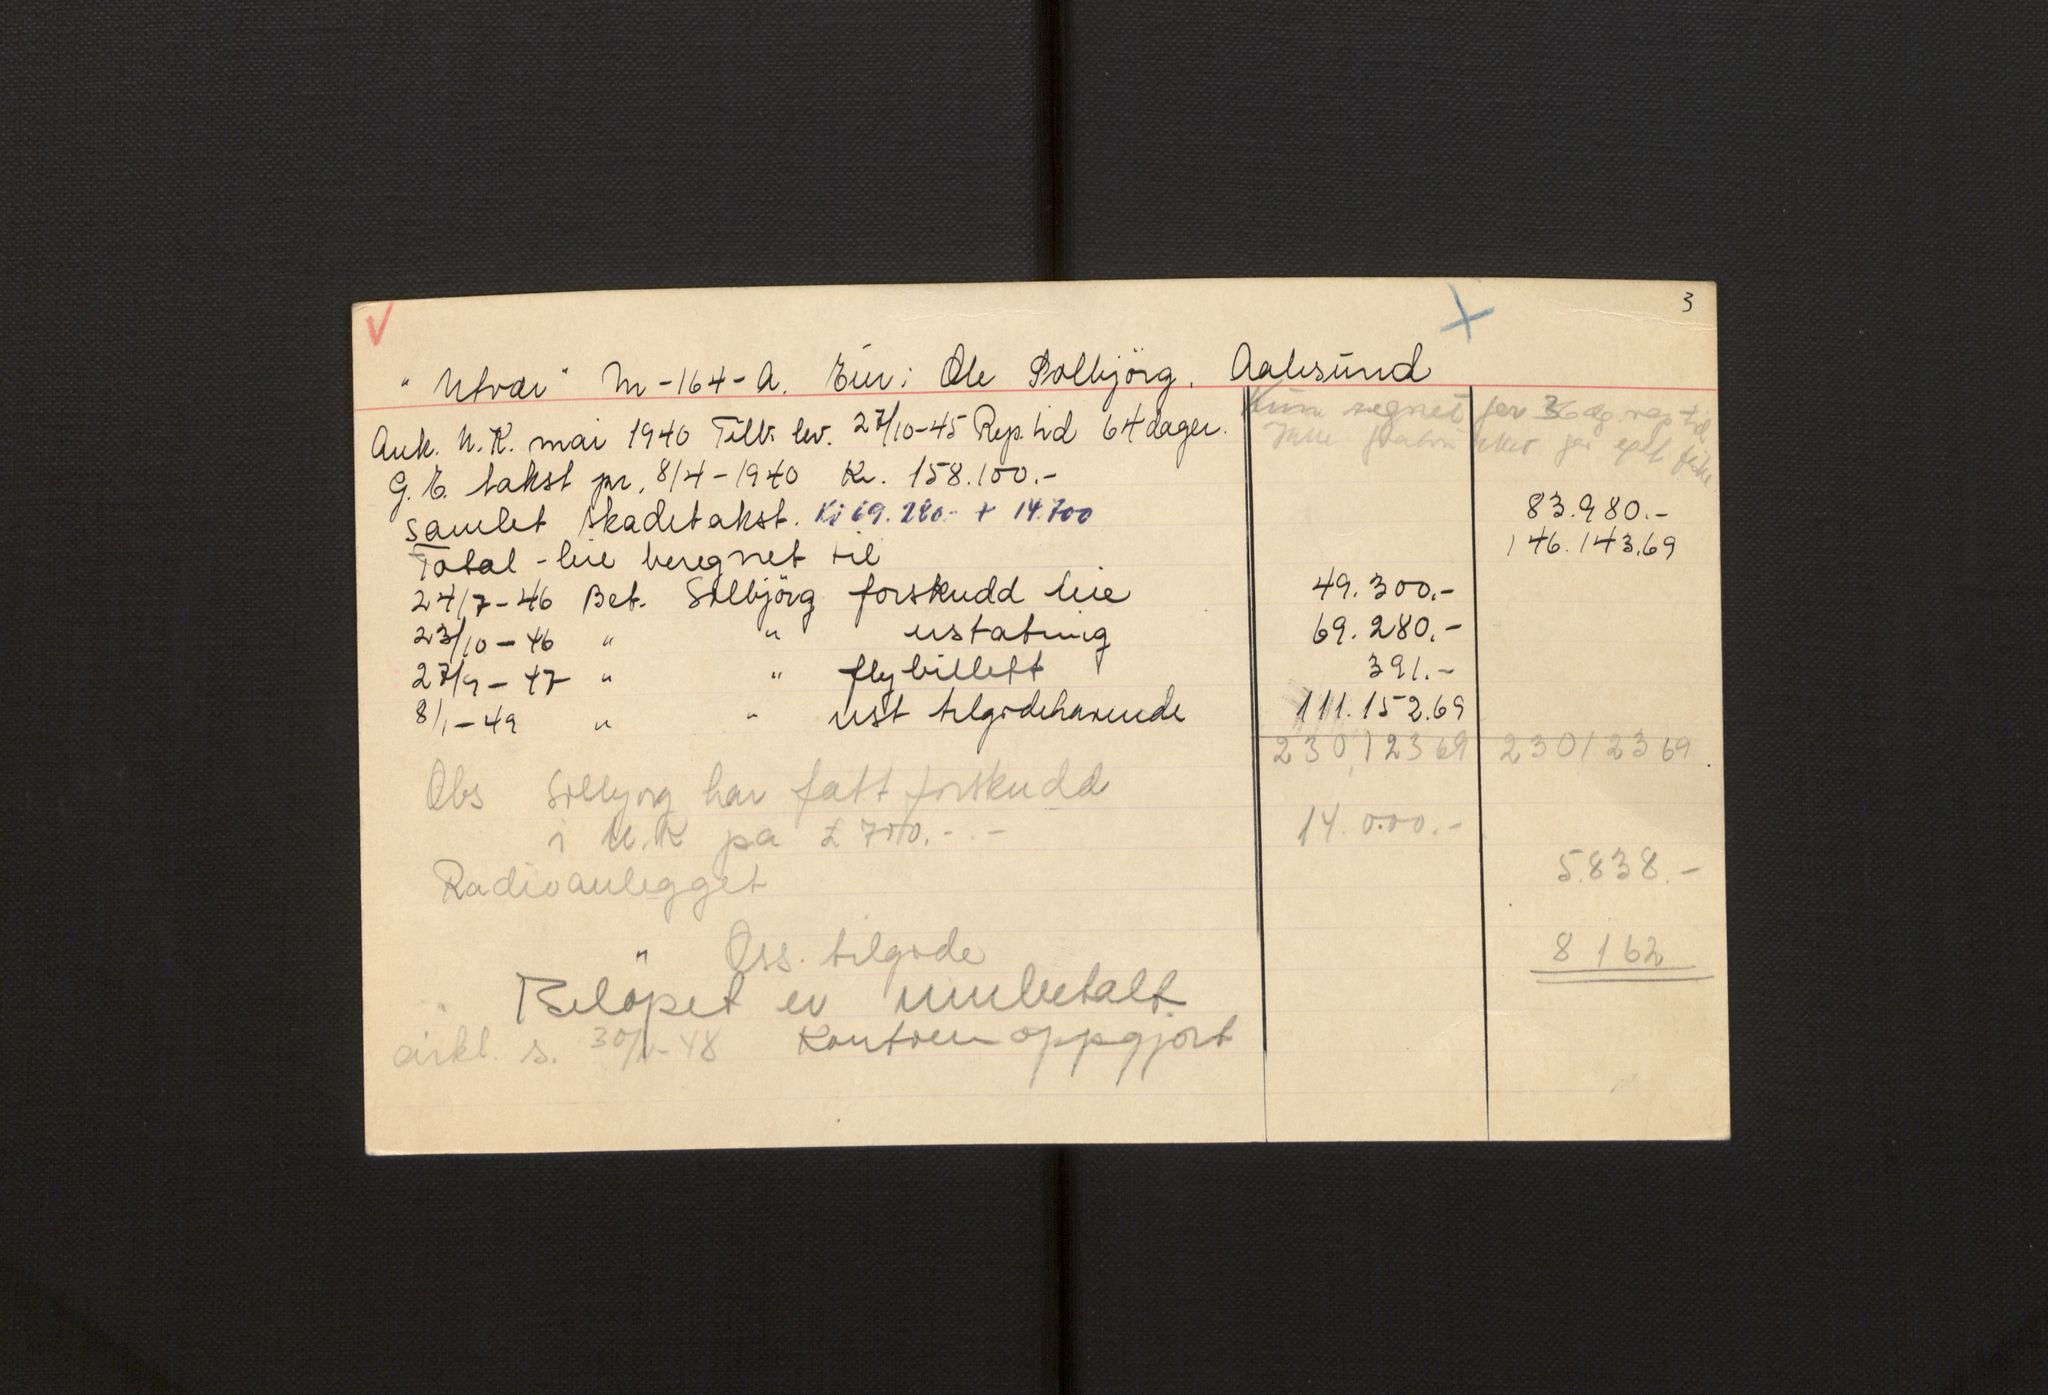 3
"Utvær" M-164-A. Eier: Ole Solbjörg. Aalesund
Kun regnet for 36 dg. rep. tid.
Ank. U.K. mai 1940 Tilb. lev. 27/10-45 Rep. tid 64 dager.
G.E. takst pr. 8/4-1940 Kr. 158.100.-
Samlet skadetakst. Kr 69.280.- + 14.700 83.980.-
Total-leie beregnet til 146.143.69
24/7-46 Bet. Solbjörg forskudd leie 49.300.-
23/10-46 " " erstatning 69.280.-
27/9-47 " " flybillett 391.-
8/1-49 " " rest tilgodehavende 111.152.69
230.123 69 230123 69
Obs Solbjørg har fått forskudd
i U.K på £ 700.- - 14.000.-
Radioanlegget 5.838.-
" Oss tilgode 8 162
Beløpet er innbetalt
s. 30/ -48 Kontoen oppgjort